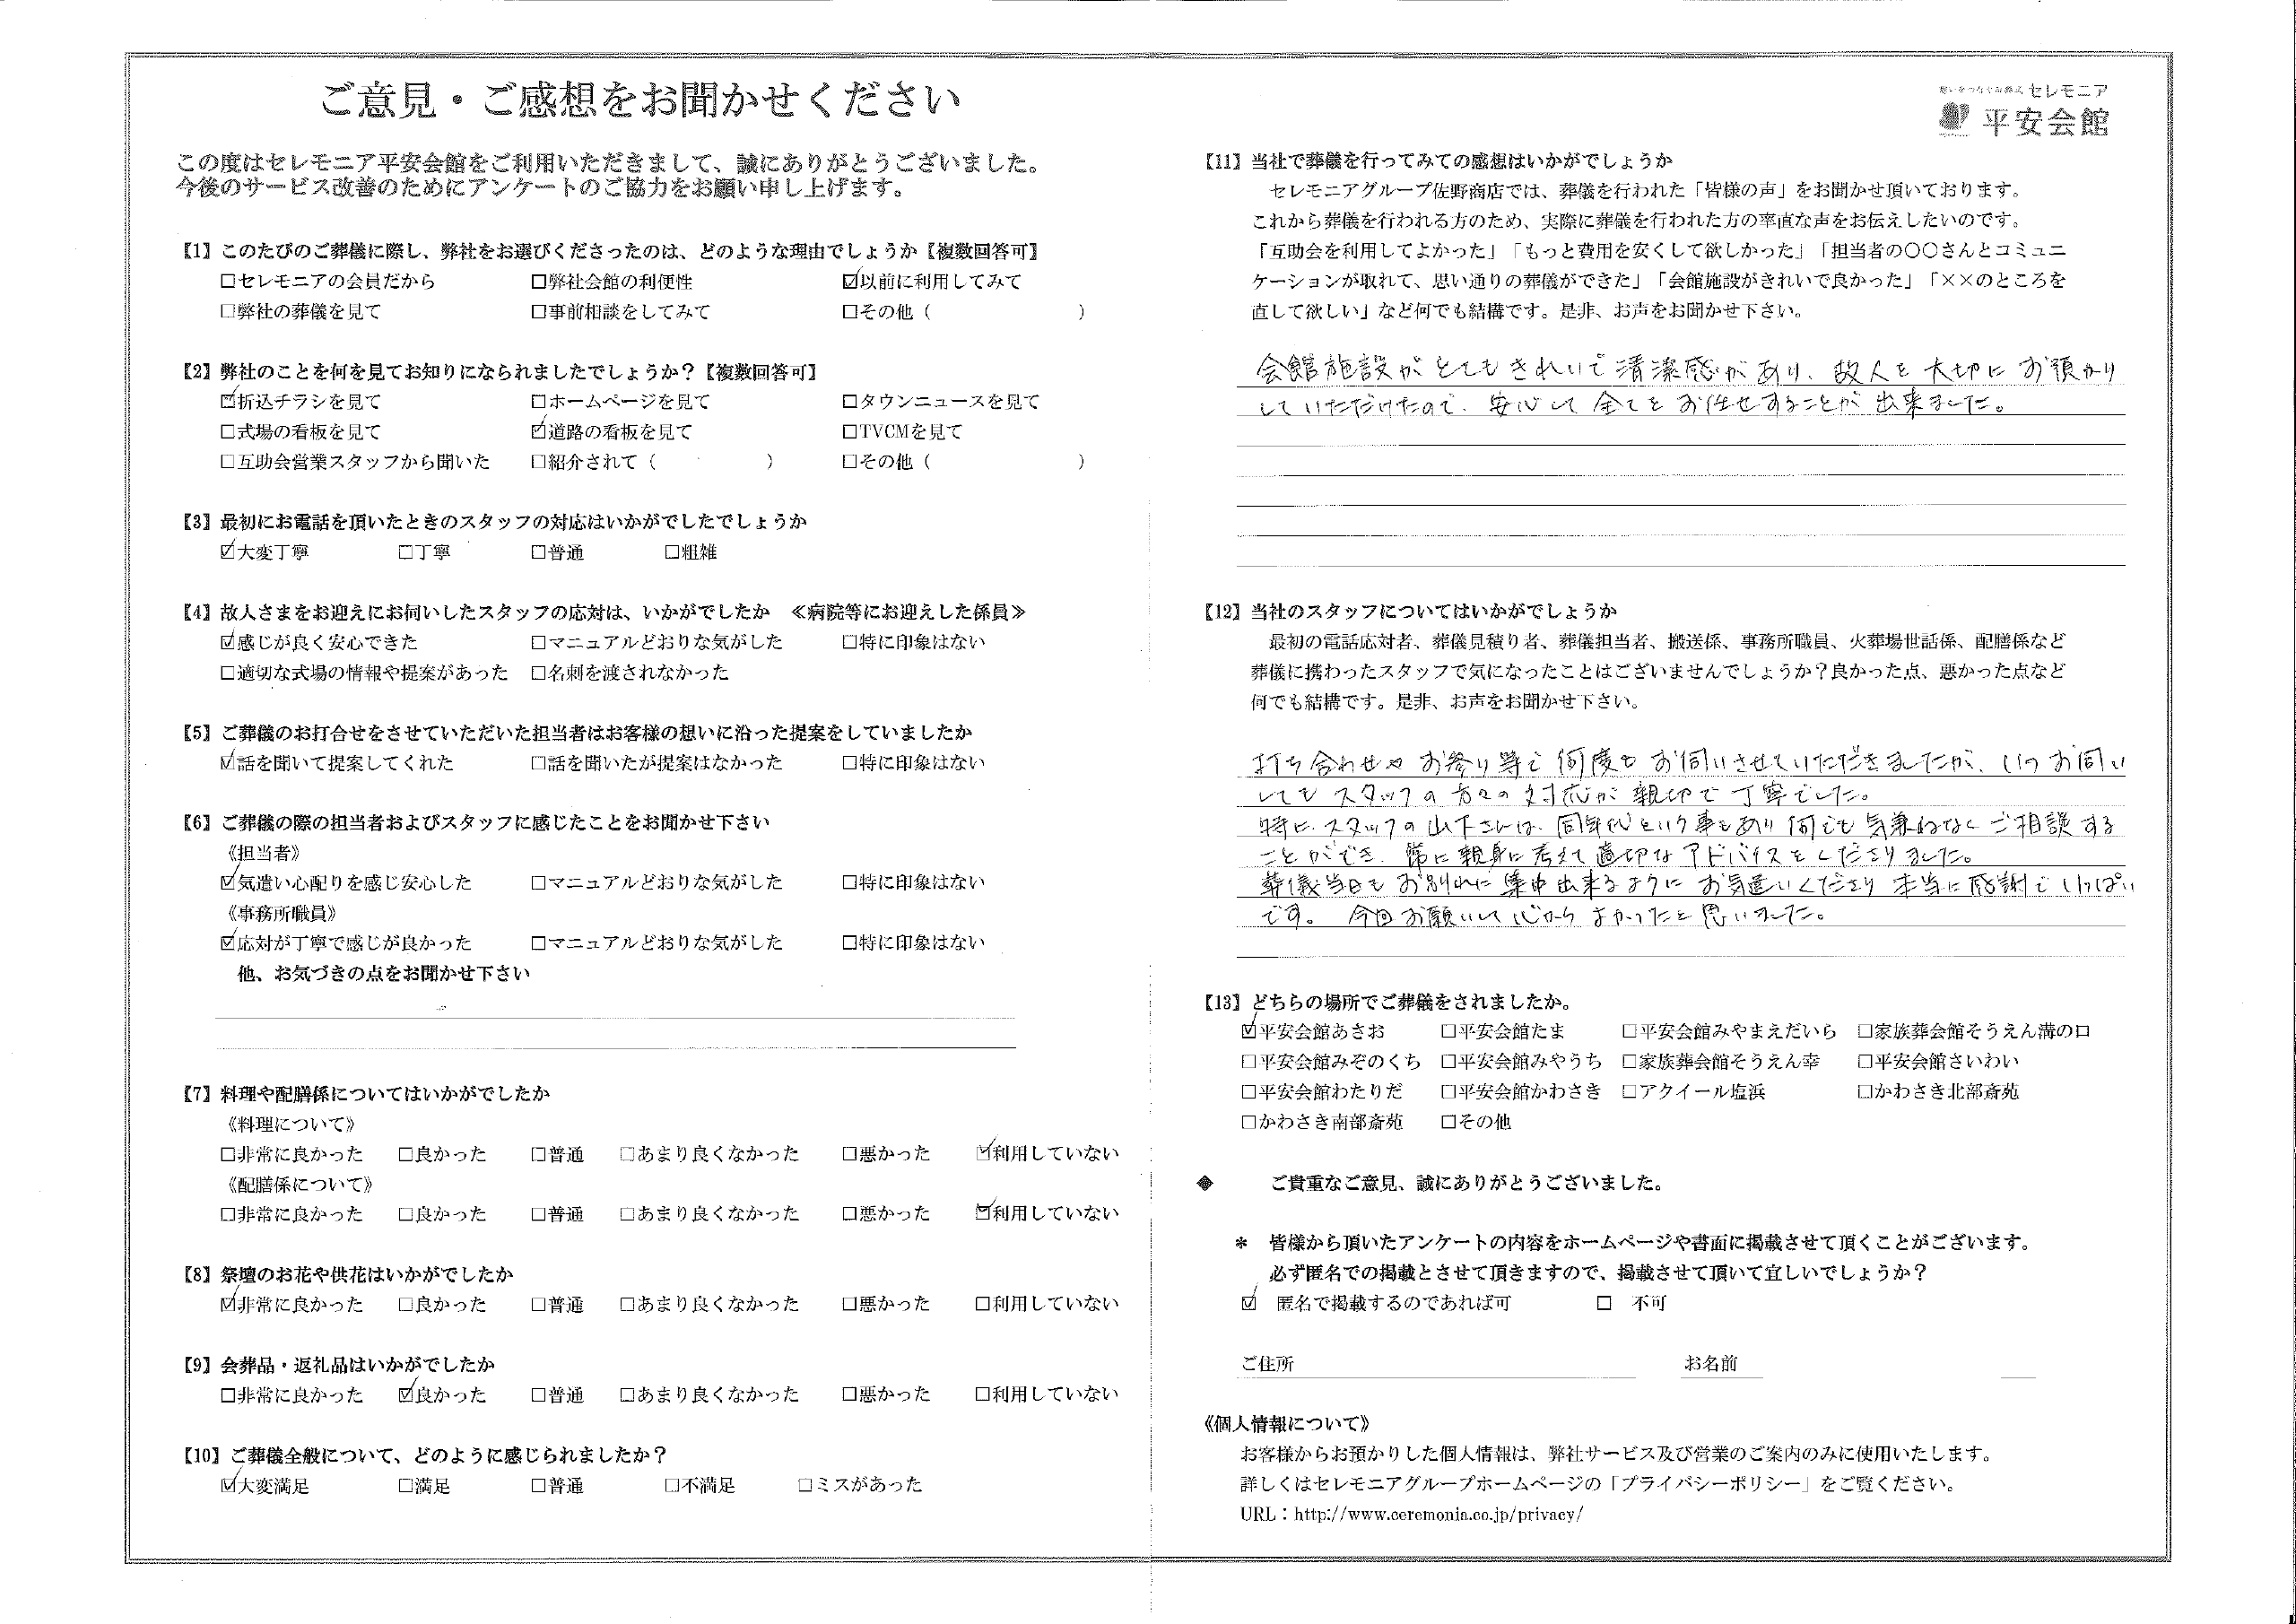 ご意見・ご感想をお聞かせください
この度はセレモニア平安会館をご利用いただきまして、誠にありがとうございました。
今後のサービス改善のためにアンケートのご協力をお願い申し上げます。
【1】このたびのご葬儀に際し、弊社をお選びくださったのは、どのような理由でしょうか【複数回答可】
□セレモニアの会員だから □弊社会館の利便性 ☑以前に利用してみて
□弊社の葬儀を見て □事前相談をしてみて □その他（ ）
【2】弊社のことを何を見てお知りになられましたでしょうか？【複数回答可】
☑折込チラシを見て □ホームページを見て □タウンニュースを見て
□式場の看板を見て ☑道路の看板を見て □TVCMを見て
□互助会営業スタッフから聞いた □紹介されて（ ） □その他（ ）
【3】最初にお電話を頂いたときのスタッフの対応はいかがでしたでしょうか
☑大変丁寧 □丁寧 □普通 □粗雑
【4】故人さまをお迎えにお伺いしたスタッフの応対は、いかがでしたか ≪病院等にお迎えした係員≫
☑感じが良く安心できた □マニュアルどおりな気がした □特に印象はない
□適切な式場の情報や提案があった □名刺を渡されなかった
【5】ご葬儀のお打合せをさせていただいた担当者はお客様の想いに沿った提案をしていましたか
☑話を聞いて提案してくれた □話を聞いたが提案はなかった □特に印象はない
【6】ご葬儀の際の担当者およびスタッフに感じたことをお聞かせ下さい
《担当者》
☑気遣い心配りを感じ安心した □マニュアルどおりな気がした □特に印象はない
《事務所職員》
☑応対が丁寧で感じが良かった □マニュアルどおりな気がした □特に印象はない
他、お気づきの点をお聞かせ下さい
【7】料理や配膳係についてはいかがでしたか
《料理について》
□非常に良かった □良かった □普通 □あまり良くなかった □悪かった ☑利用していない
《配膳係について》
□非常に良かった □良かった □普通 □あまり良くなかった □悪かった ☑利用していない
【8】祭壇のお花や供花はいかがでしたか
☑非常に良かった □良かった □普通 □あまり良くなかった □悪かった □利用していない
【9】会葬品・返礼品はいかがでしたか
□非常に良かった ☑良かった □普通 □あまり良くなかった □悪かった □利用していない
【10】ご葬儀全般について、どのように感じられましたか？
☑大変満足 □満足 □普通 □不満足 □ミスがあった
想いをつなぐお葬式 セレモニア
平安会館
【11】当社で葬儀を行ってみての感想はいかがでしょうか
セレモニアグループ佐野商店では、葬儀を行われた「皆様の声」をお聞かせ頂いております。
これから葬儀を行われる方のため、実際に葬儀を行われた方の率直な声をお伝えしたいのです。
「互助会を利用してよかった」「もっと費用を安くして欲しかった」「担当者の〇〇さんとコミュニ
ケーションが取れて、思い通りの葬儀ができた」「会館施設がきれいで良かった」「××のところを
直して欲しい」など何でも結構です。是非、お声をお聞かせ下さい。
会館施設がとてもきれいで清潔感があり、故人を大切にお預かり
していただけたので、安心して全てをお任せすることが出来ました。
【12】当社のスタッフについてはいかがでしょうか
最初の電話応対者、葬儀見積り者、葬儀担当者、搬送係、事務所職員、火葬場世話係、配膳係など
葬儀に携わったスタッフで気になったことはございませんでしょうか？良かった点、悪かった点など
何でも結構です。是非、お声をお聞かせ下さい。
打ち合わせやお参り等で何度もお伺いさせていただきましたが、いつお伺い
してもスタッフの方々の対応が親切で丁寧でした。
特に、スタッフの山下さんは、同年代という事もあり何でも気兼ねなくご相談する
ことができ、常に親身に考えて適切なアドバイスをくださりました。
葬儀当日もお別れに集中出来るようにお気遣いくださり本当に感謝でいっぱい
です。 今回お願いして心からよかったと思いました。
【13】どちらの場所でご葬儀をされましたか。
☑平安会館あさお □平安会館たま □平安会館みやまえだいら □家族葬会館そうえん溝の口
□平安会館みぞのくち □平安会館みやうち □家族葬会館そうえん幸 □平安会館さいわい
□平安会館わたりだ □平安会館かわさき □アクイール塩浜 □かわさき北部斎苑
□かわさき南部斎苑 □その他
◆ ご貴重なご意見、誠にありがとうございました。
＊ 皆様から頂いたアンケートの内容をホームページや書面に掲載させて頂くことがございます。
必ず匿名での掲載とさせて頂きますので、掲載させて頂いて宜しいでしょうか？
☑ 匿名で掲載するのであれば可 □ 不可
ご住所 お名前
《個人情報について》
お客様からお預かりした個人情報は、弊社サービス及び営業のご案内のみに使用いたします。
詳しくはセレモニアグループホームページの「プライバシーポリシー」をご覧ください。
URL：http://www.ceremonia.co.jp/privacy/